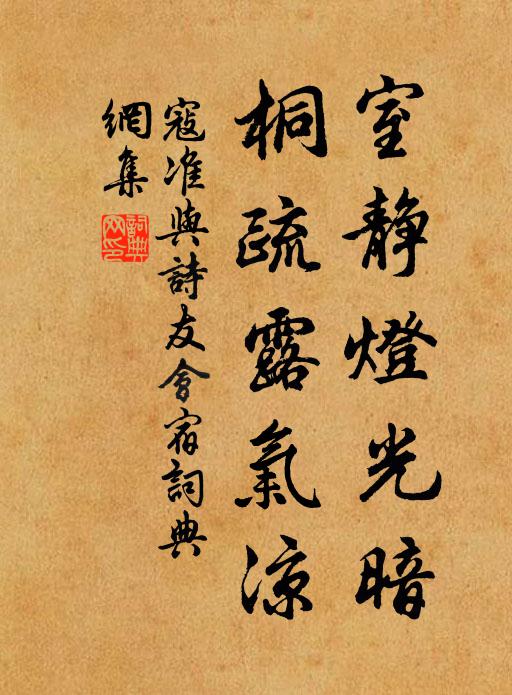 室靜燈光暗
桐疏露氣涼
寇准與詩友會宿詞典
網集
詞典網印